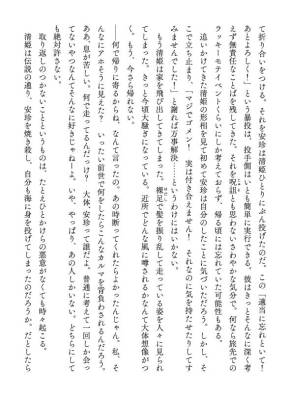 て折り合いをつける。それを安珍は清姫ひとりにぶん投げたのだ。この「適当に忘れといて！
あとよろしく！」という暴投は、投手側はいとも簡単に実行できる。彼はきっとそんなに深く考
えず無責任なことばを残してきた。それを呪詛とも思わないさわやかな気分で、何なら旅先での
ラッキーモテイベントくらいにしか考えておらず、帰る頃には忘れていた可能性もある。
追いかけてきた清姫の形相を見て初めて安珍は自分のしたことに気づいただろう。しかし、そ
こで立ち止まり、「マジでゴメン！　実は付き合えません！　それなのに気を持たせたりしてす
みませんでした！」と謝れば万事解決……というわけにはいかない。
もう清姫は家を飛び出してきてしまった。裸足で髪を振り乱して走っている姿を人々に見られ
てしまった。きっと今頃大騒ぎになっている。近所でどんな風に噂されるかなんて大体想像がつ
く。もう、今さら帰れない。
――何で帰りに寄るからね、なんて言ったの。あの時断ってくれたらよかったんじゃん。私、そ
んなにアホそうに見えた？　いったい前世で何をしたらこんなカルマを背負わされるんだろう。
ああ、息が苦しい。何で走ってるんだっけ？　大体、安珍って誰だよ。普通に考えて一回しか会っ
てないやつなんてそんなに好きじゃねーよ。いや、やっぱり、あの人しかいない。どちらにして
も絶対許さない。
取り返しのつかないことというものは、たとえひとかけらの悪意がなくても時々起こる。
清姫は伝説の通り、安珍を焼き殺し、自分も海に身を投げてしまったのだろうか。だとしたら